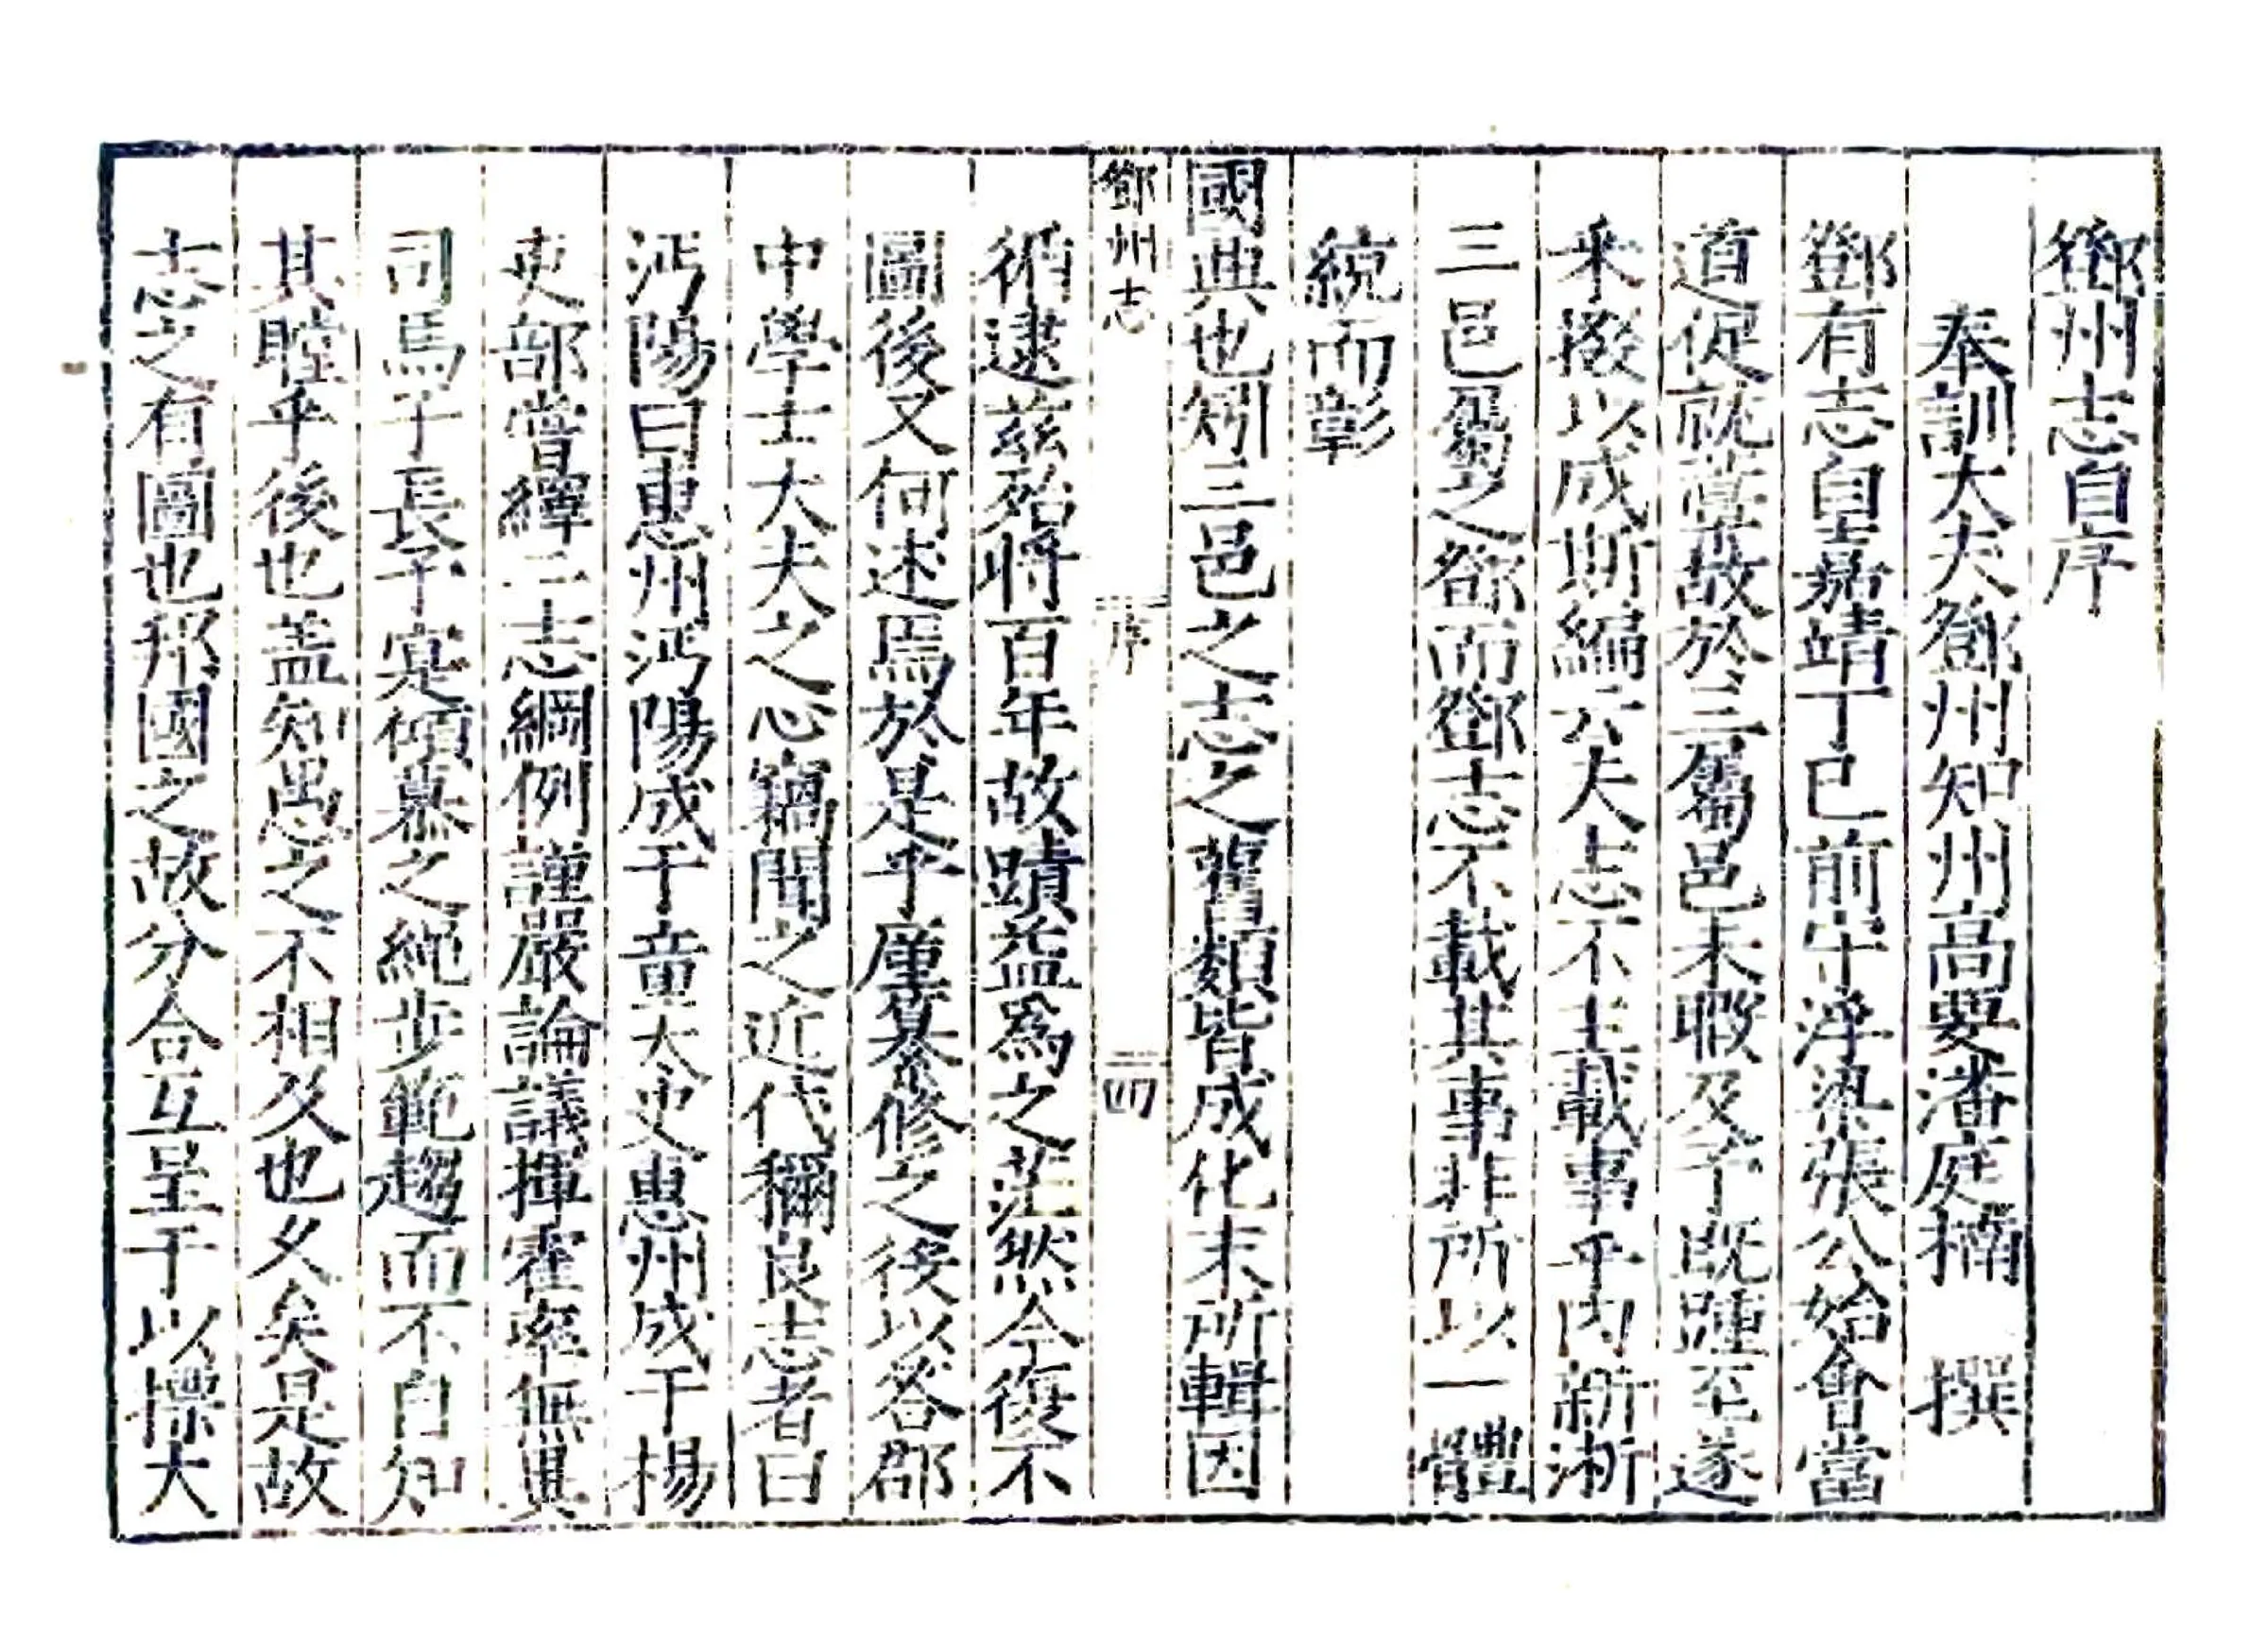 鄧州志自序
奉訓大夫鄧州知州高要潘庭楠　撰
鄧有志自皇嘉靖丁巳前守浮梁張公始會當
道促就藁故於三屬邑未暇及予既踵至遂
采掇以成斯編云夫志不主載事乎內新淅
三邑屬之鄧而鄧志不載其事非所以一體
統而彰
國典也矧三邑之志之舊類皆成化末所輯因
鄧州志
序
四
循逮茲殆將百年故蹟益為之茫然今復不
圖後又何述焉於是乎廑纂修之役以咨郡
中學士大夫之心竊聞之近代稱良志者曰
沔陽曰惠州沔陽成于童太史惠州成于楊
吏部嘗繹二志綱例謹嚴論議揮霍率無異
司馬子長予寔傾慕之繩步範趨而不自知
其瞠乎後也蓋知愚之不相及也久矣是故
志之有圖也邦國之故分合互呈于以摽大